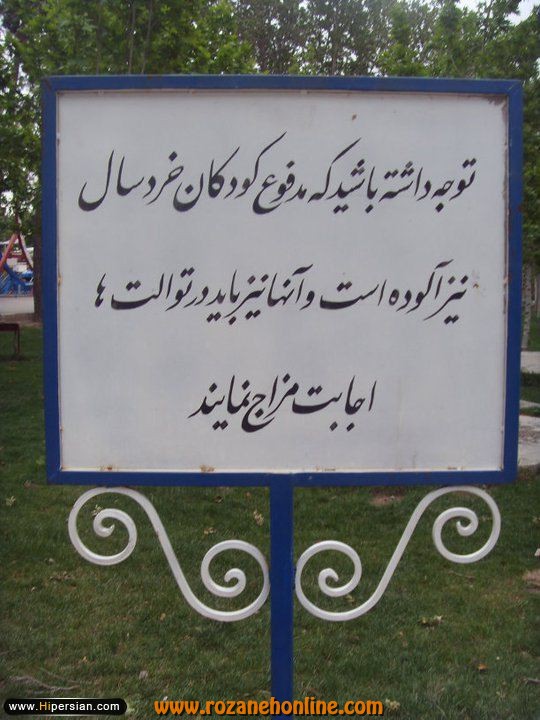 توجه داشته باشید که مدفوع کودکان خردسال
نیز آلوده است و آنها نیز باید در توالت ها
اجابت مزاج نمایند
www.Hipersian.com
www.rozanehonline.com